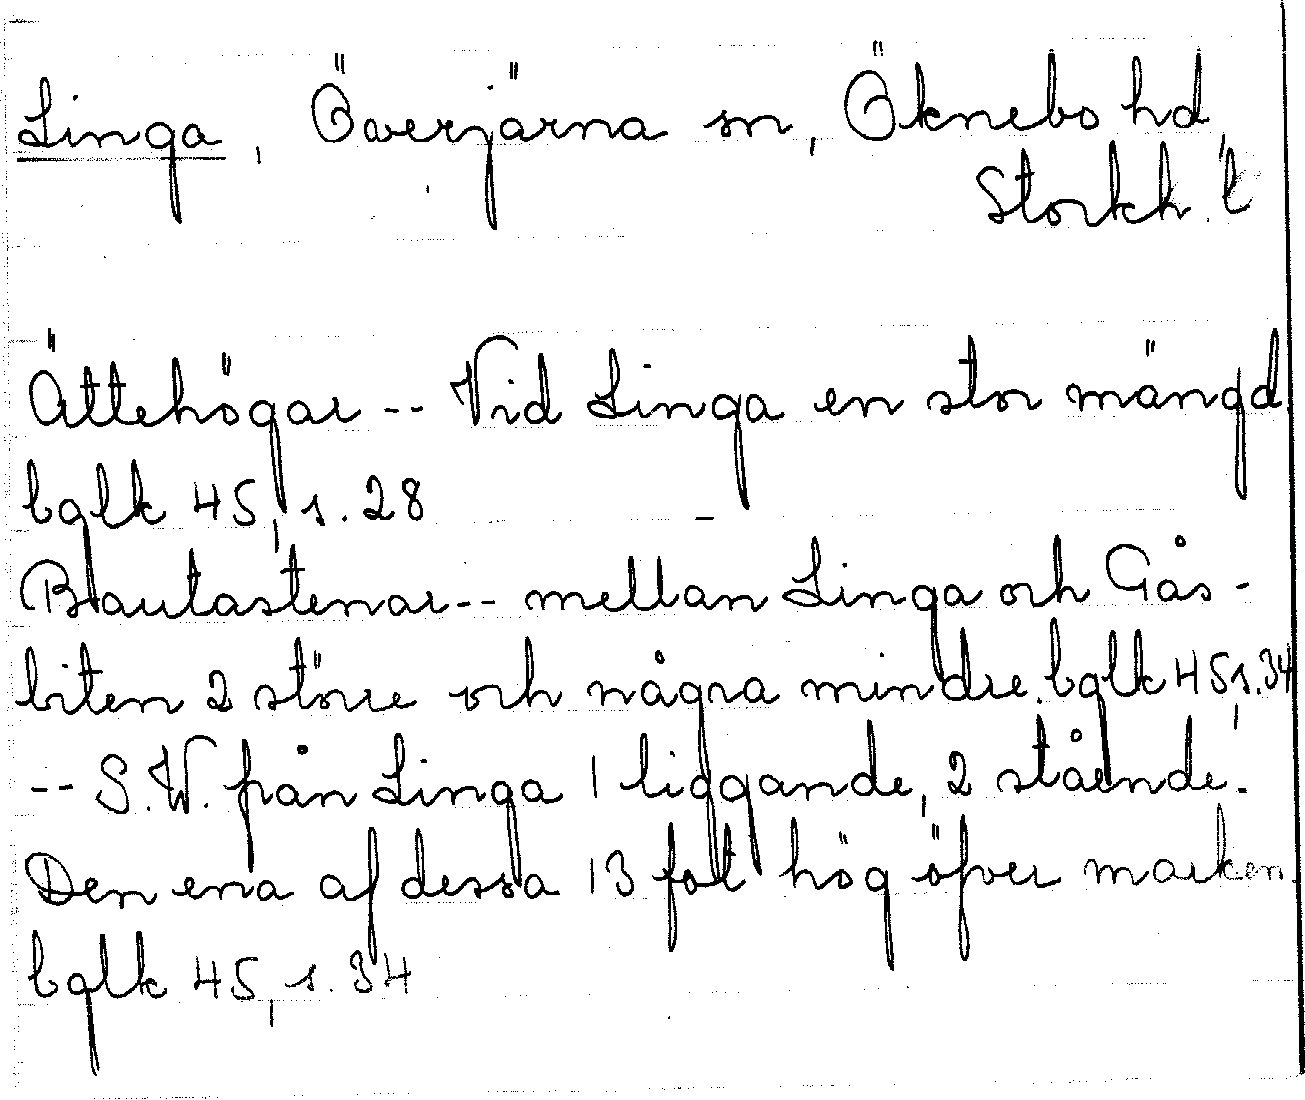 Linga, Överjärna sn, Öknebo hd,
Stockh. l
Ättehögar -- Vid Linga en stor mängd
bglk 45, s. 28
Bautastenar -- mellan Linga och Gås-
biten 2 större och några mindre. bglk 45, s. 34
-- S.W. från Linga 1 liggande, 2 stående.
Den ena af dessa 13 fot hög öfver marken.
bglk 45, s. 34